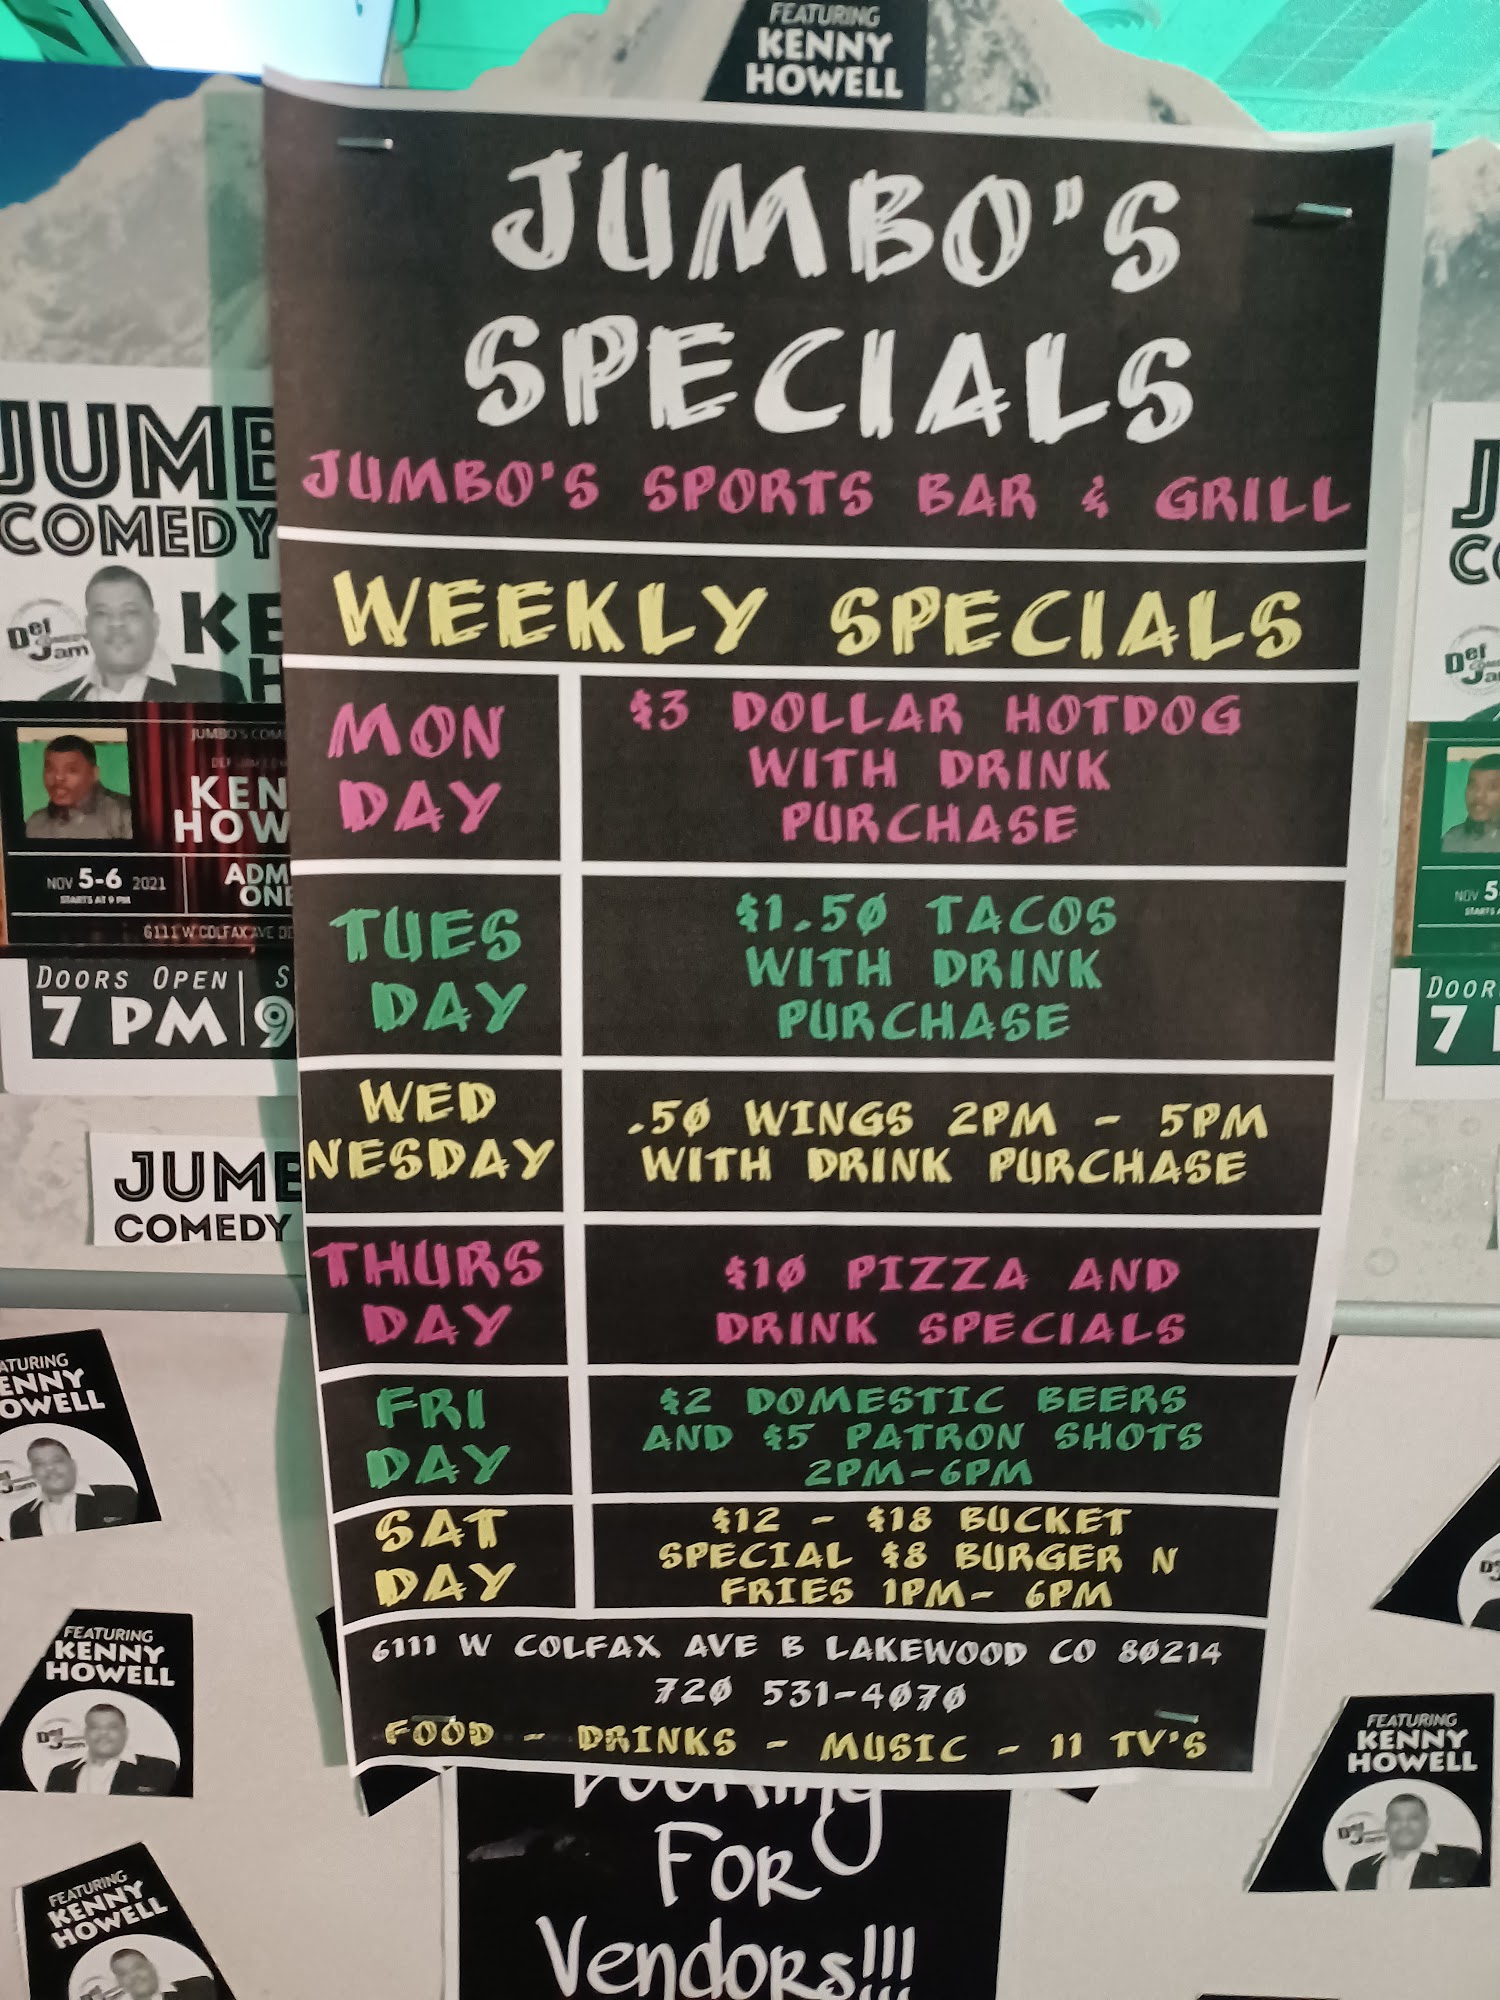 FEATURING
KENNY
HOWELL
JUMBO'S
SPECIALS
JUMBO'S SPORTS BAR & GRILL
WEEKLY SPECIALS
MON
DAY
$3 DOLLAR HOTDOG
WITH DRINK
PURCHASE
TUES
DAY
$1.50 TACOS
WITH DRINK
PURCHASE
WED
NESDAY
.50 WINGS 2PM - 5PM
WITH DRINK PURCHASE
THURS
DAY
$10 PIZZA AND
DRINK SPECIALS
FRI
DAY
$2 DOMESTIC BEERS
AND $5 PATRON SHOTS
2PM-6PM
SAT
DAY
$12 - $18 BUCKET
SPECIAL $8 BURGER N
FRIES 1PM- 6PM
6111 W COLFAX AVE B LAKEWOOD CO 80214
720 531-4070
FOOD - DRINKS - MUSIC - 11 TV'S
Looking
For
Vendors!!!
JUMB
COMEDY
Def
Jam
KE
H
JUMBO'S COM
KEN
HOW
NOV 5-6 2021
STARTS AT 9 PM
ADM
ONE
6111 W COLFAX AVE DE
DOORS OPEN S
7 PM 9
JUMB
COMEDY
ATURING
ENNY
OWELL
FEATURING
KENNY
HOWELL
Def
Jam
FEATURING
KENNY
HOWELL
J
CO
Def
Ja
NOV 5
DOOR
7
FEATURING
KENNY
HOWELL
Def
Jam